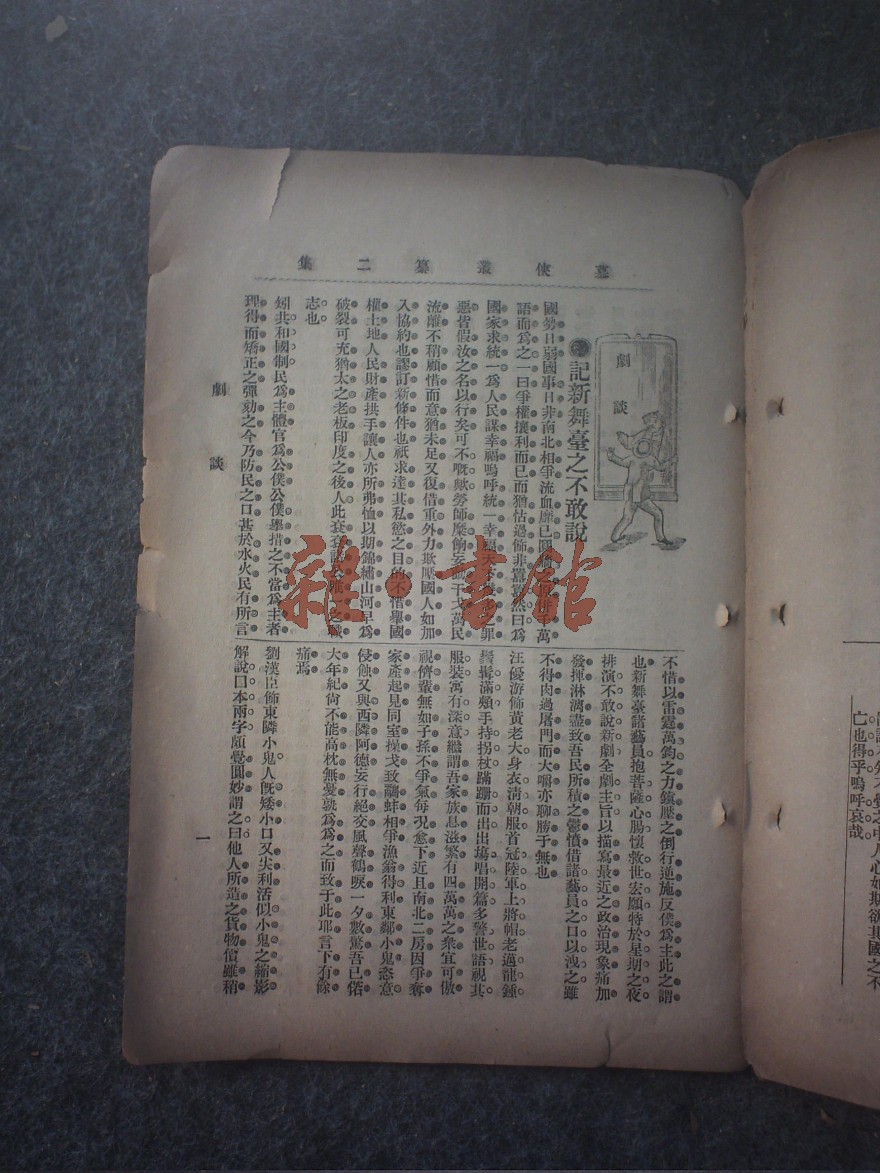 集二纂叢俠慕
劇談
記新舞臺之不敢說
國勢日弱國事日非南北相爭流血靡已
語而爲之一曰爭權攘利而已而猶怙過飾非囂囂然曰爲
國家求統一爲人民謀幸福嗚呼統一幸福之罪
惡皆假汝之名以行矣可不慨歟勞師糜餉妄動干戈萬民
流離不稍顧惜而意猶未足又復借重外力欺壓國人如加
入協約也謬訂新條件也祇求達其私慾之目的不惜舉國
權土地人民財產拱手讓人亦所弗恤以期錦繡山河早爲
破裂可充猶太之老板印度之後人此袞袞諸公唯一之職
志也
矧共和國制民爲主體官爲公僕公僕舉措之不當爲主者
理得而矯正之彈劾之今乃防民之口甚於水火民有所言
不惜以雷霆萬鈞之力鎮壓之倒行逆施反僕爲主此之謂
也新舞臺諸藝員抱菩薩心腸懷救世宏願特於星期之夜
排演不敢說新劇全劇主旨以描寫最近之政治現象痛加
發揮淋漓盡致吾民所積之鬱憤借諸藝員之口以洩之雖
不得肉過屠門而大嚼亦聊勝于無也
汪優游飾黃老大身衣清朝服首冠陸軍上將帽老邁龍鍾
鬍鬚滿頰手持拐杖蹣跚而出出場唱開篇多警世語視其
服裝寓有深意繼謂吾家族息滋繁有四萬萬之衆宜可傲
視儕輩無如子孫不爭氣每況愈下近且南北二房因爭奪
家產起見同室操戈致鷸蚌相爭漁翁得利東鄰小鬼恣意
侵蝕又與西隣阿德安行絕交風聲鶴唳一夕數驚吾已偌
大年紀尙不能高枕無憂孰爲爲之而致于此耶言下有餘
痛焉
劉漢臣飾東隣小鬼人旣矮小口又尖利活似小鬼之縮影
解說日本兩字頗覺圓妙謂之曰他人所造之貨物價雖稍
劇談
一
亡也得乎嗚呼哀哉